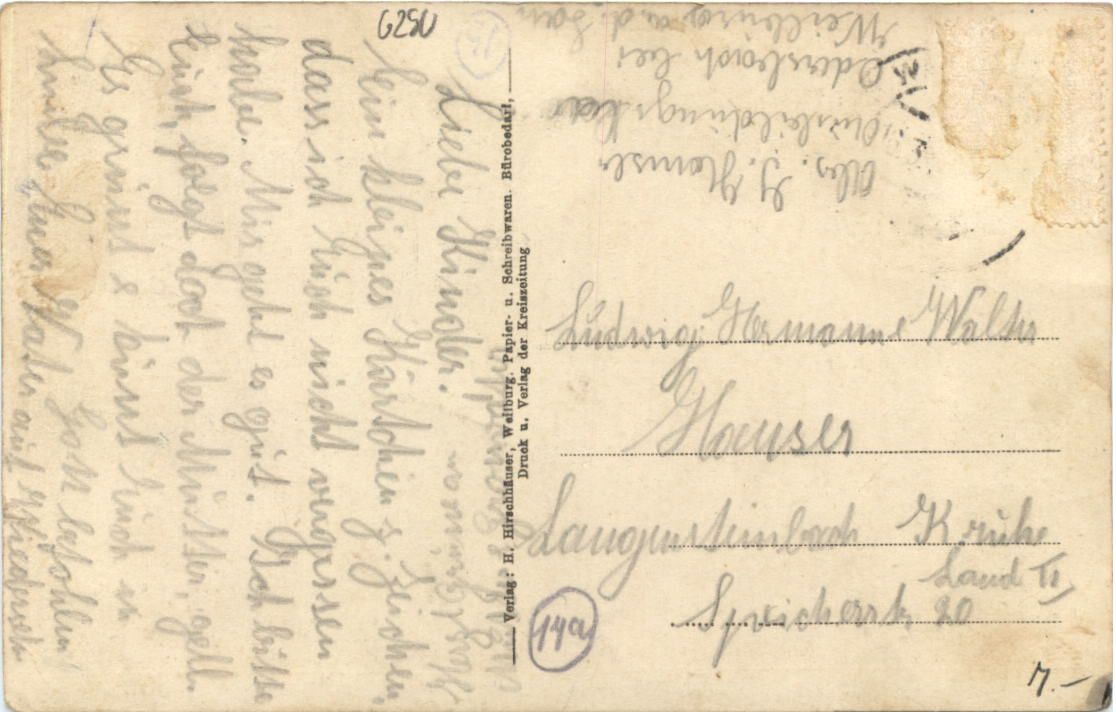 6250
15
Liebe Kinder.
Ein kleines Kärtchen z. Zeichen,
dass ich Euch nicht vergessen
habe. Mir geht es gut. Ich bitte
Euch, folgt doch der Mutter, gell.
Es grüsst & küsst Euch in
Liebe Euer
Vater auf Wiedersehn
Verlag: H. Hirschhäuser, Weilburg. Papier- u. Schreibwaren. Bürobedarf,
Druck u. Verlag der Kreiszeitung
Abs. J. Hauser
Ausbildungs
Odersbach bei
Weilburg a. d. Lan
Ludwig Hermann Walter
Hauser
Langensteinbach K.ruhe
Land II
Speicherstr. 20
14a
7.-